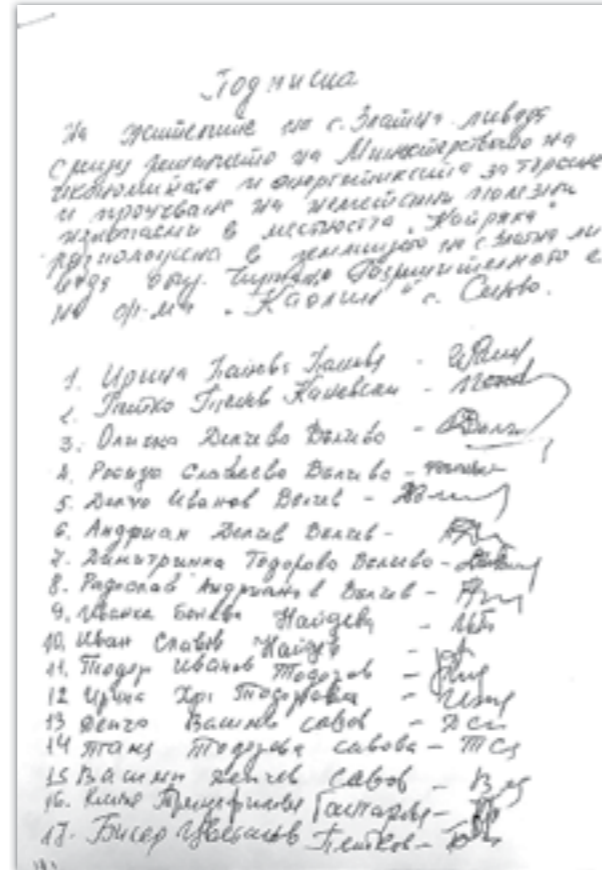 Подписка
На жителите на с. Златна ливада
срещу решението на Министерството на
икономиката и енергетиката за търсене
и проучване на неметални полезни
изкопаеми в местността "Кайряка"
разположена в землището на с. Златна ли
вада общ. Чирпан. Разрешителното е
на ф-ма "Каолин" с. Сеново.
1. Ирина Панева -
2. Петко Каневски -
3. Делчева Вълчева -
4. Росица Славеева Вълчева -
5. Делчо Иванов Вълчев -
6. Андриан Делчев Вълчев -
7. Димитринка Тодорова Вълчева -
8. Радослав Андрианов Вълчев -
9. Иванка Бонева Найдева -
10. Иван Славов Найдев -
11. Тодор Иванов Тодоров -
12 Ирина Тодорова -
13 Денчо савов -
14 Таня Тодорова савова - ТСа
15 Денчев савов -
16.
17. Бисер Петков -